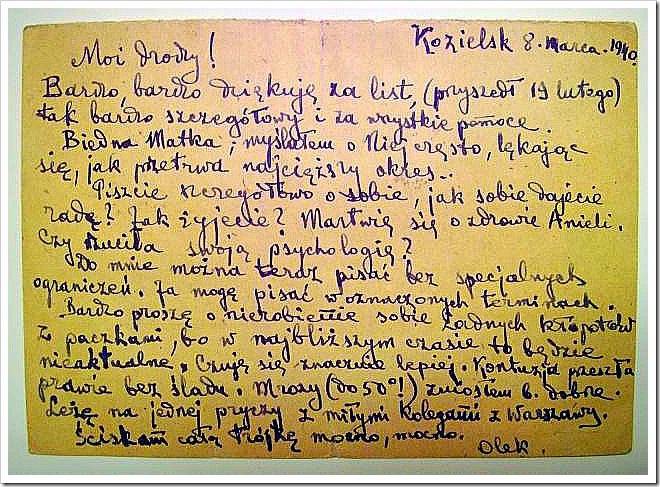 Kozielsk 8. marca. 1940.
Moi drodzy!
Bardzo, bardzo dziękuję za list, (przyszedł 19 lutego)
tak bardzo szczegółowy i za wszystkie pomoce.
Biedna Matka; myślałem o Niej często, lękając
się, jak przetrwa najcięższy okres..
Piszcie szczegółowo o sobie, jak sobie dajecie
radę? Jak żyjecie? Martwię się o zdrowie Anieli.
Czy rzuciła swoją psychologię?
Do mnie można teraz pisać bez specjalnych
ograniczeń. Ja mogę pisać w oznaczonych terminach.
Bardzo proszę o nierobienie sobie żadnych kłopotów
z paczkami, bo w najbliższym czasie to będzie
nieaktualne. Czuję się znacznie lepiej. Kontuzja przeszła
prawie bez śladu. Mrozy (do 50°!) zniosłem b. dobrze.
Leżę na jednej pryczy z miłymi kolegami z Warszawy.
Ściskam całą trójkę mocno, mocno.
Olek.